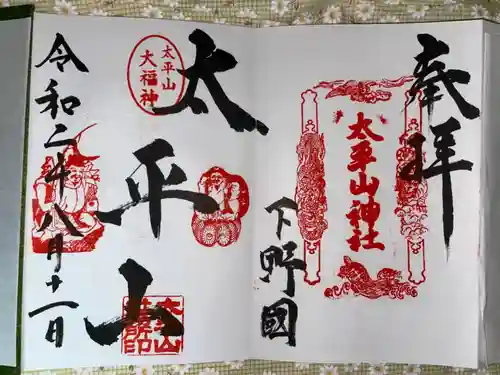 奉拝
太平山神社
下野國
太平山
太平山
大福神
令和二年八月十一日